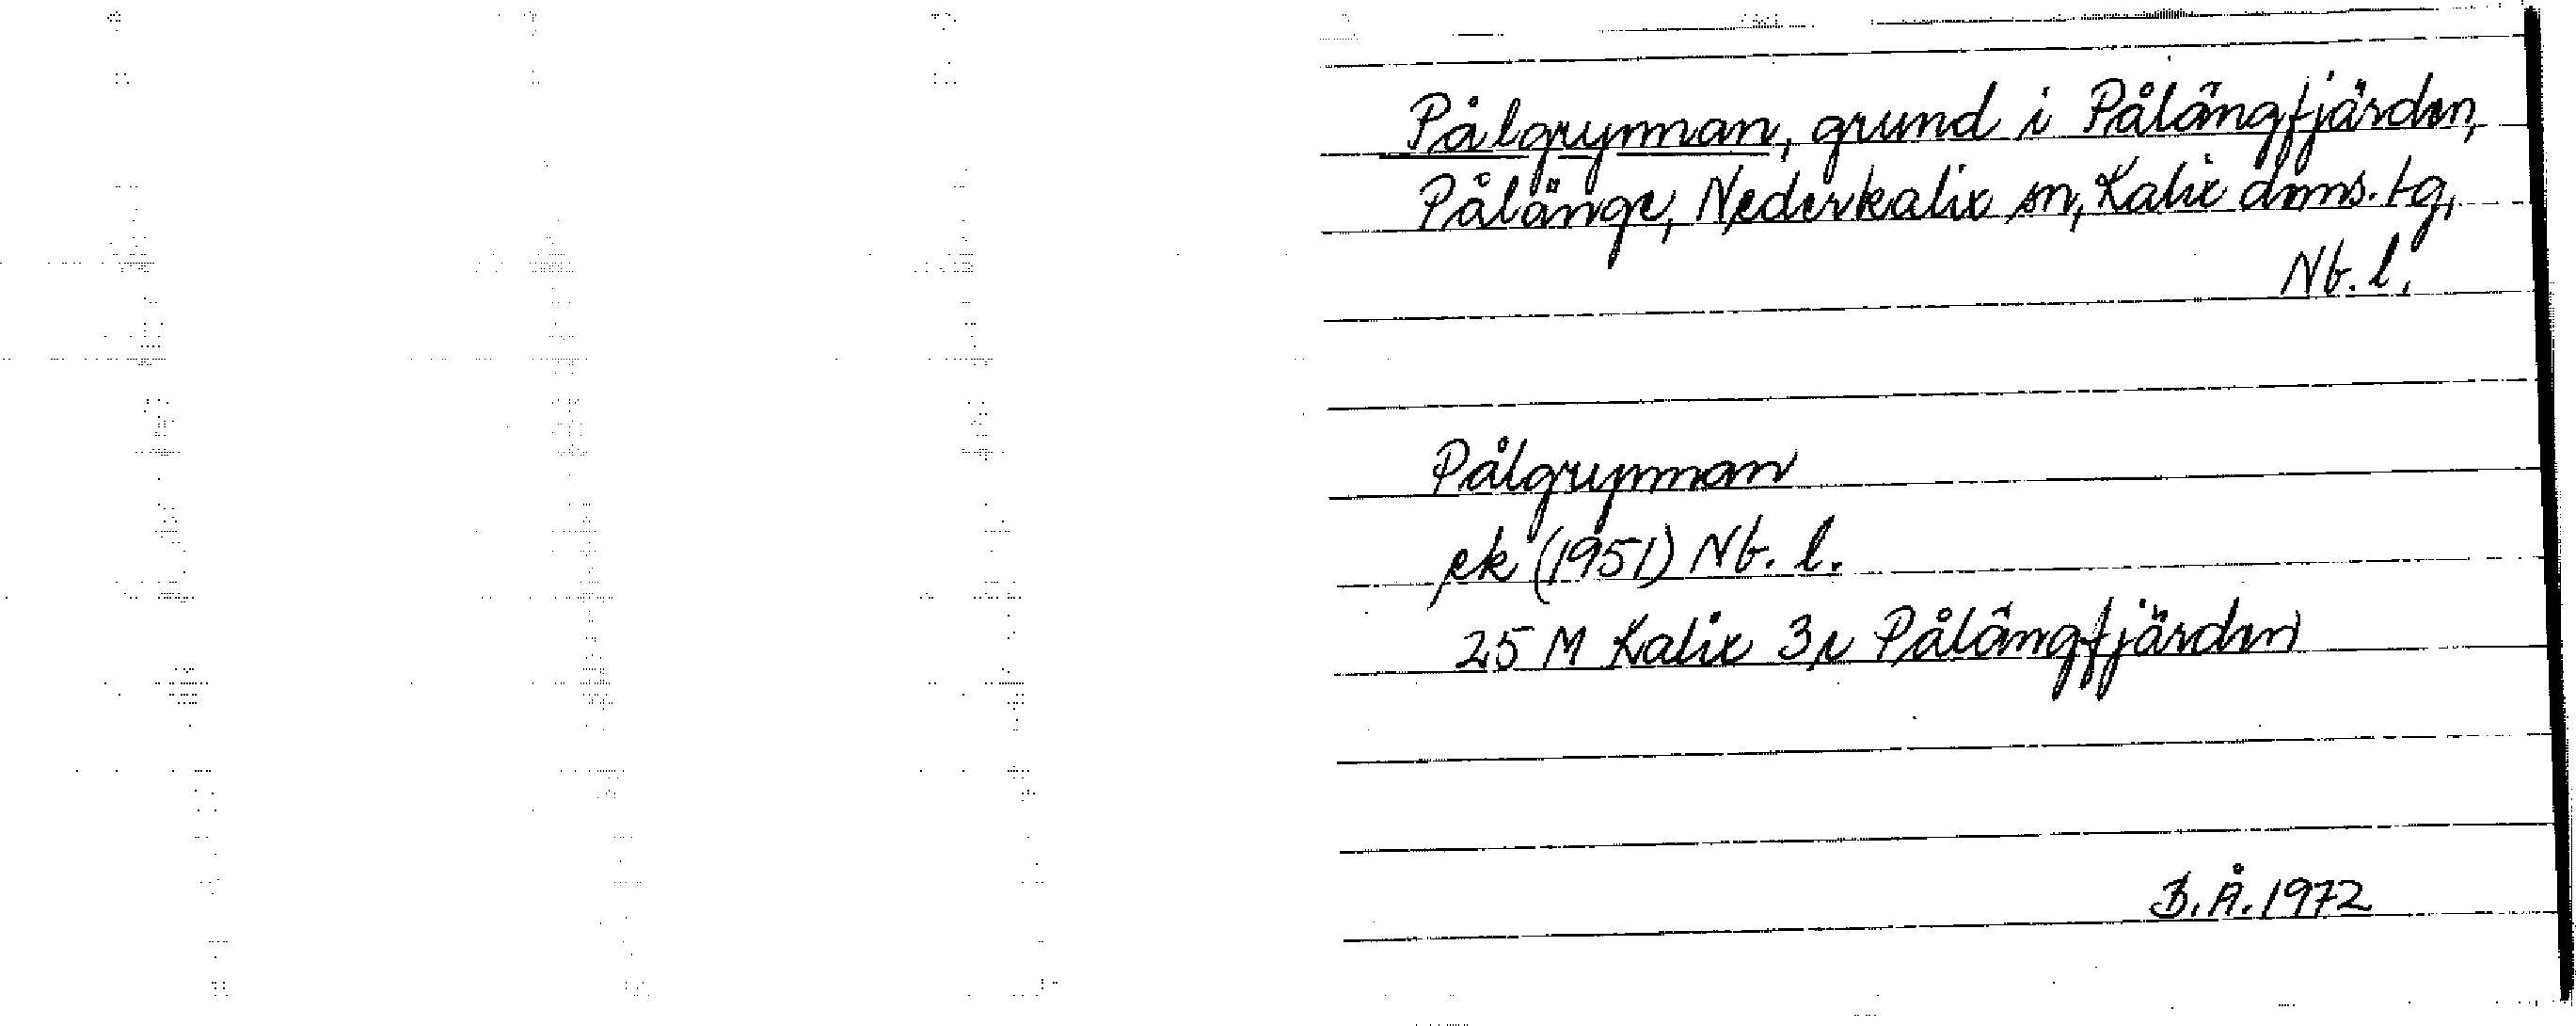 Pålgrynnan, grund i Pålängfjärden,
Pålänge, Nederkalix sn, Kalix dms. tg,
Nb. l.
Pålgrynnan
ek (1951) Nb. l.
25 M Kalix 3e Pålängfjärden
B.Å. 1972